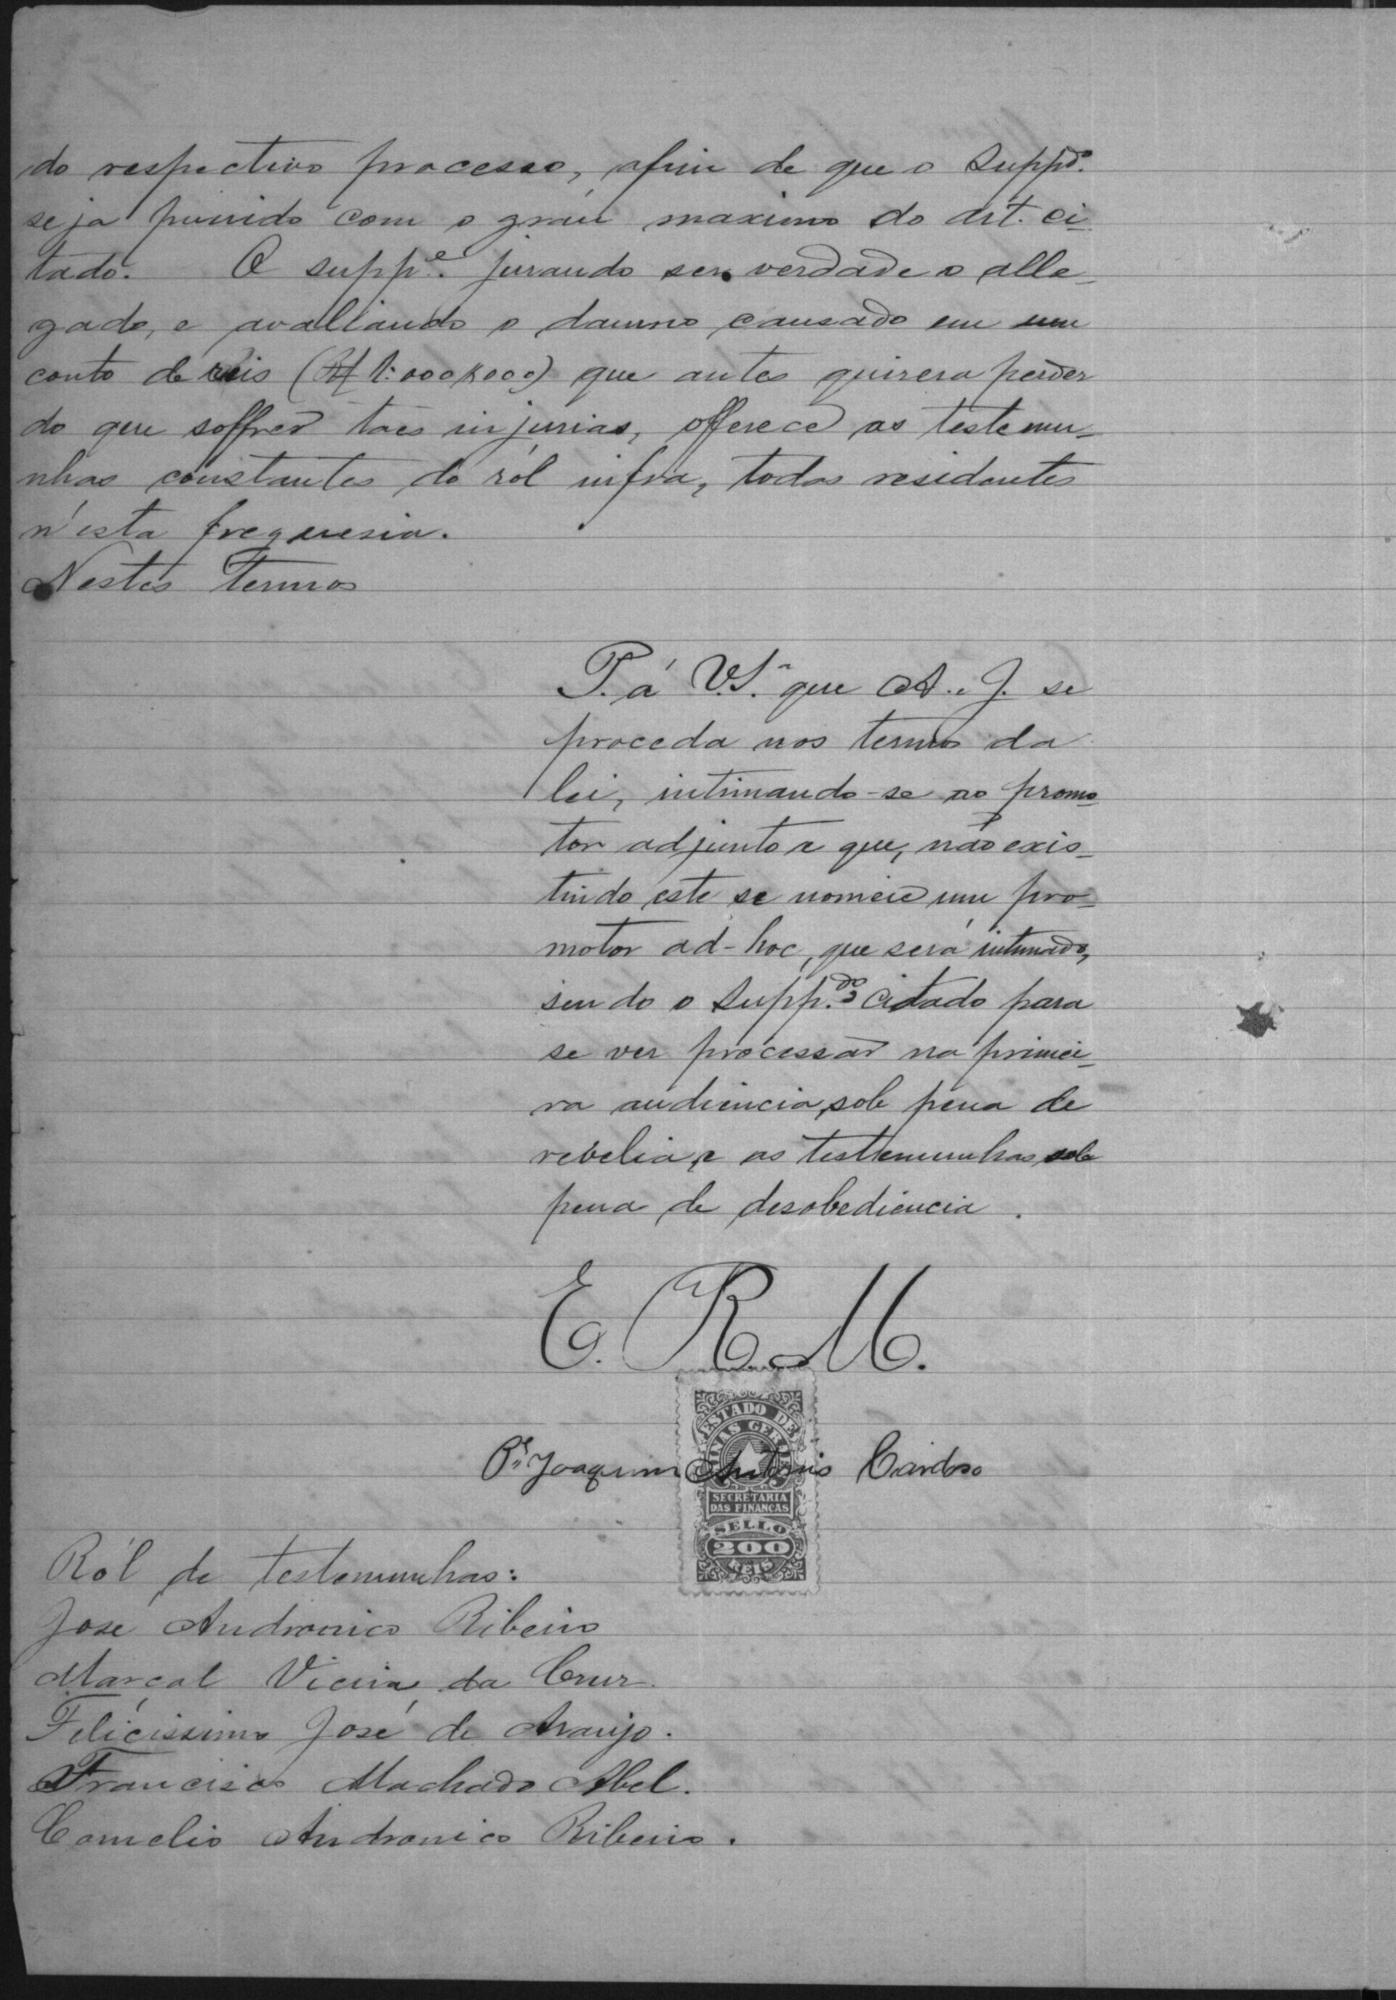 do respectivo processo, afim de que o Suppdo.
seja punido com o gráu maximo do art. ci-
tado. O suppe. jurando ser verdade o alle-
gado, e avaliando o damno causado em um
conto de reis (Rs 1:000$000) que antes quizera perder
do que soffrer taes injurias, offerece as testemu-
nhas constantes do ról infra, todas residentes
n'esta freguesia.
Nestes Termos
P. á V.Sª. que A. e J. se
proceda nos termos da
lei, intimando-se ao promo-
tor adjunto e que, não exis-
tindo este se nomeie um pro-
motor ad-hoc, que será intimado,
sendo o Supp.do citado para
se ver processar na primei-
ra audiencia, sob pena de
revelia, e as testemunhas sob
pena de desobediencia.
E. R. M.
ESTADO DE
MINAS GERAES
Pe. Joaquim Antonio Cardoso
SECRETARIA
DAS FINANCAS
SELLO
200
REIS
Ról de testemunhas:
José Andronico Ribeiro
Marçal Vieira da Cruz.
Felicissimo José de Araujo.
Francisco Machado Abel.
Cornelio Andronico Ribeiro.